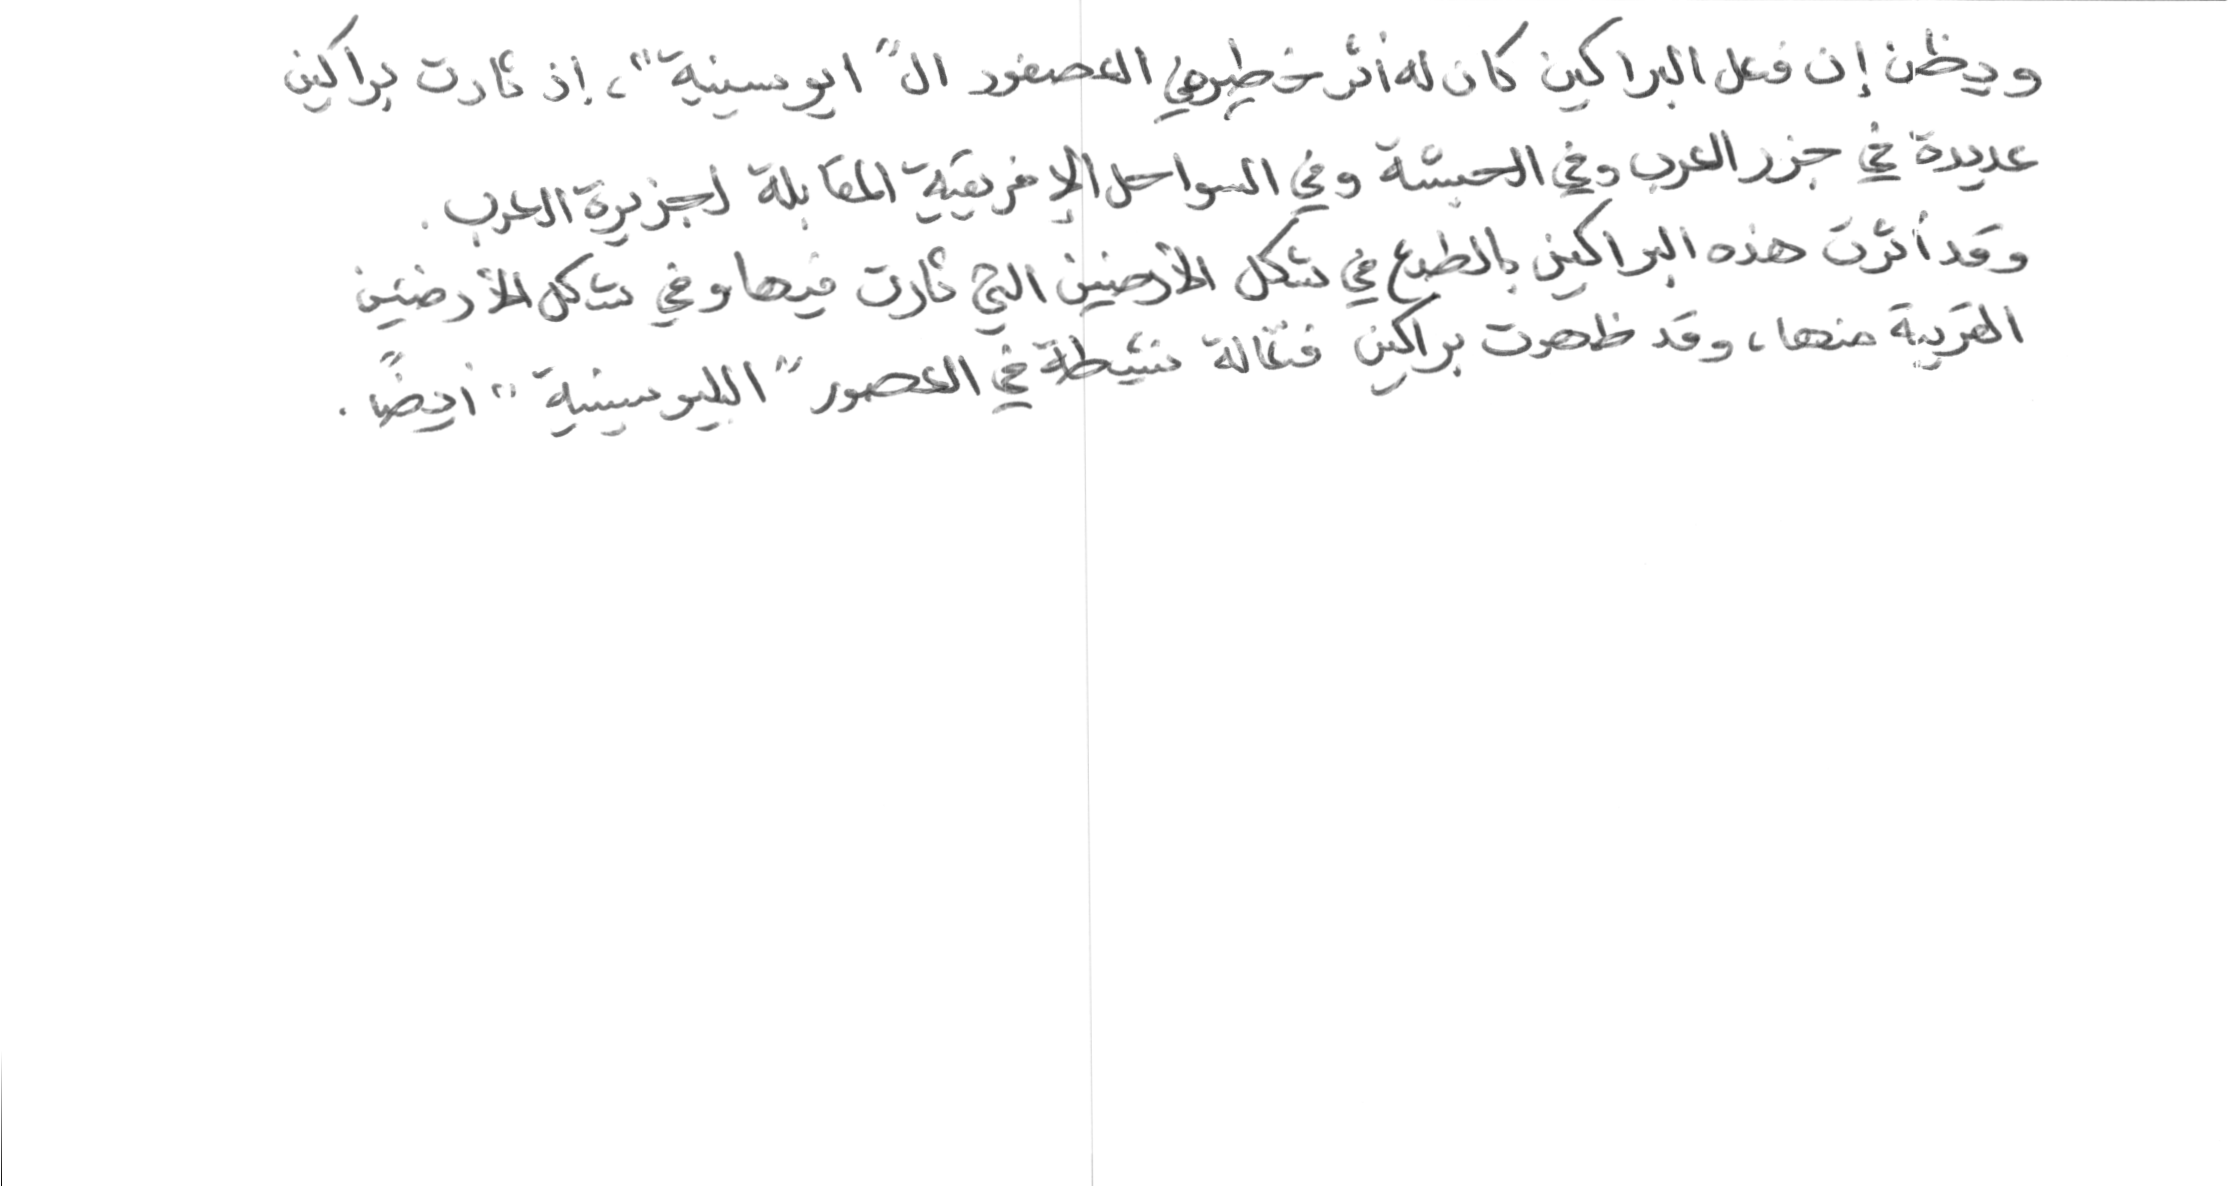 ويظن إن فعل البراكين كان له أثر خطير في العصفور ال"ايوسينية"، إذ ثارت براكين
عديدة في جزر العرب وفي الحبشة وفي السواحل الإفريقية المقابلة لجزيرة العرب.
وقد أثرت هذه البراكين بالطبع في شكل الأرضين التي ثارت فيها وفي شكل الأرضين
القريبة منها، وقد ظهرت براكين فتالة نشيطة في العصور "البليوسينية" أيضًا.